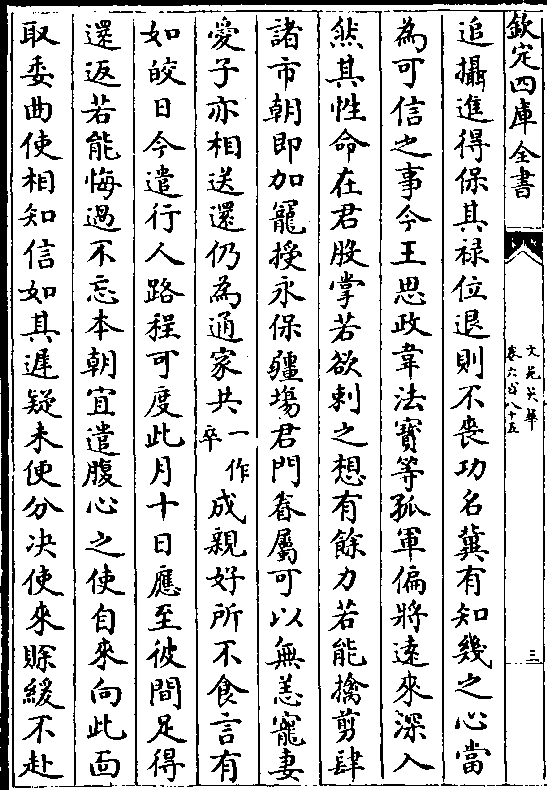 欽定四庫全書
文苑英華
卷六百八十五
三
追攝進得保其祿位退則不喪功名冀有知幾之心當
為可信之事今王思政韋法寶等孤軍偏將逺來深入
然其性命在君股掌若欲刺之想有餘力若能擒剪肆
諸市朝即加寵授永保疆埸君門眷屬可以無恙寵妻
愛子亦相送還仍為通家共一作卒成親好所不食言有
如皎日今遣行人路程可度此月十日應至彼間足得
還返若能悔過不忘本朝宜遣腹心之使自來向此面
取委曲使相知信如其遲疑未便分决使來賒緩不赴